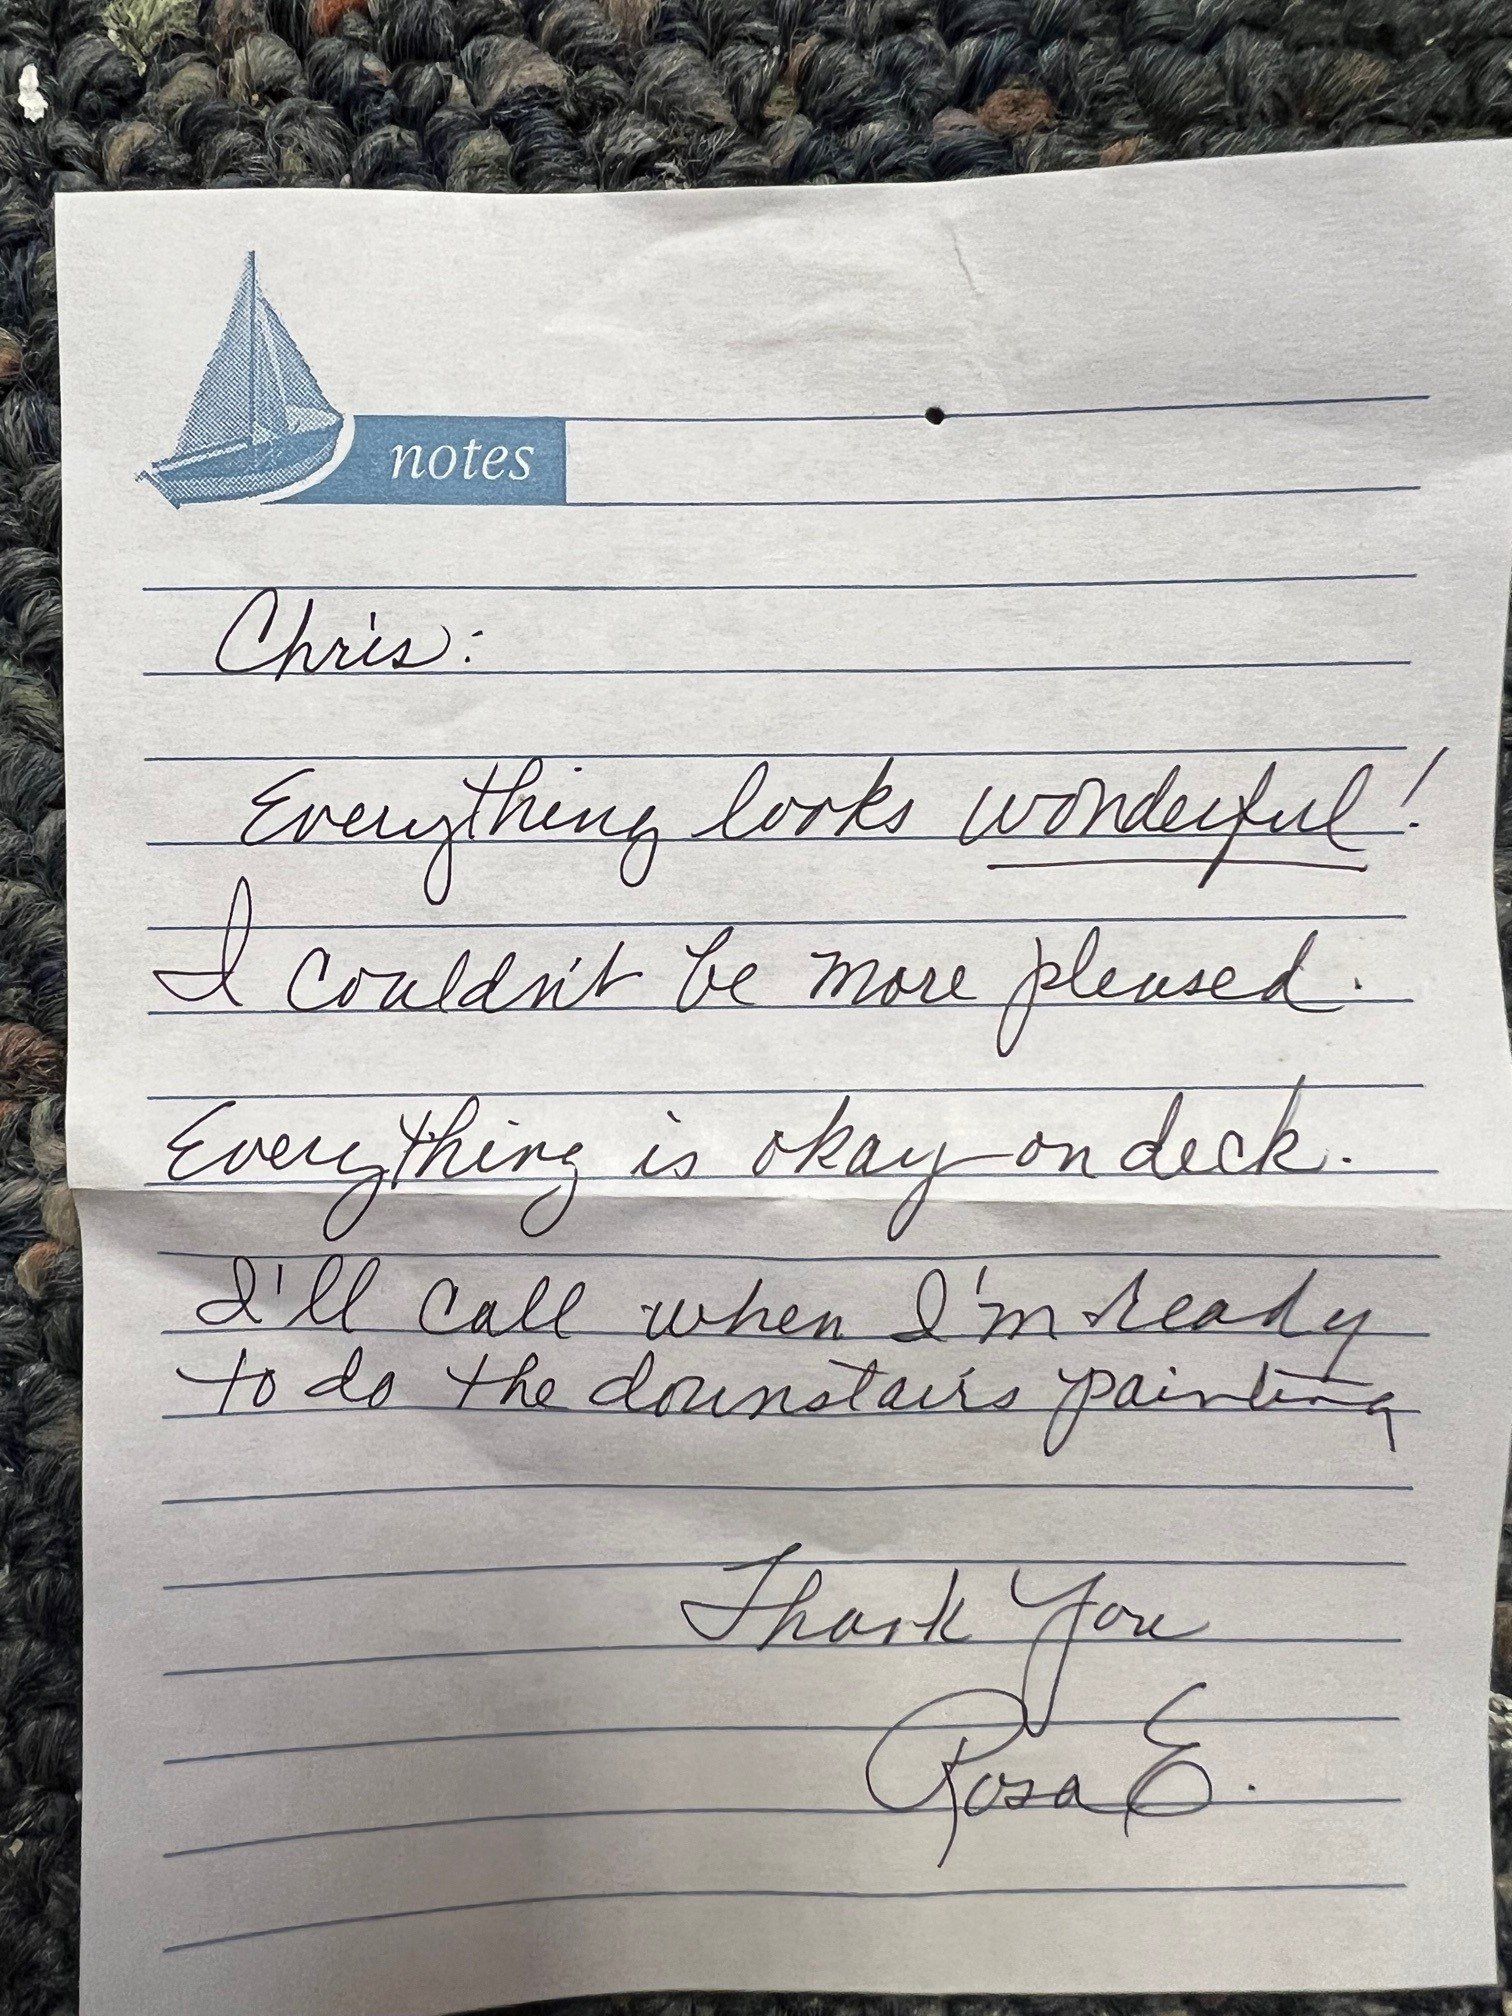 notes
Chris:
Everything looks wonderful!
I couldn't be more pleased.
Everything is okay on deck.
I'll call when I'm ready
to do the downstairs painting
Thank You
Rosa E.